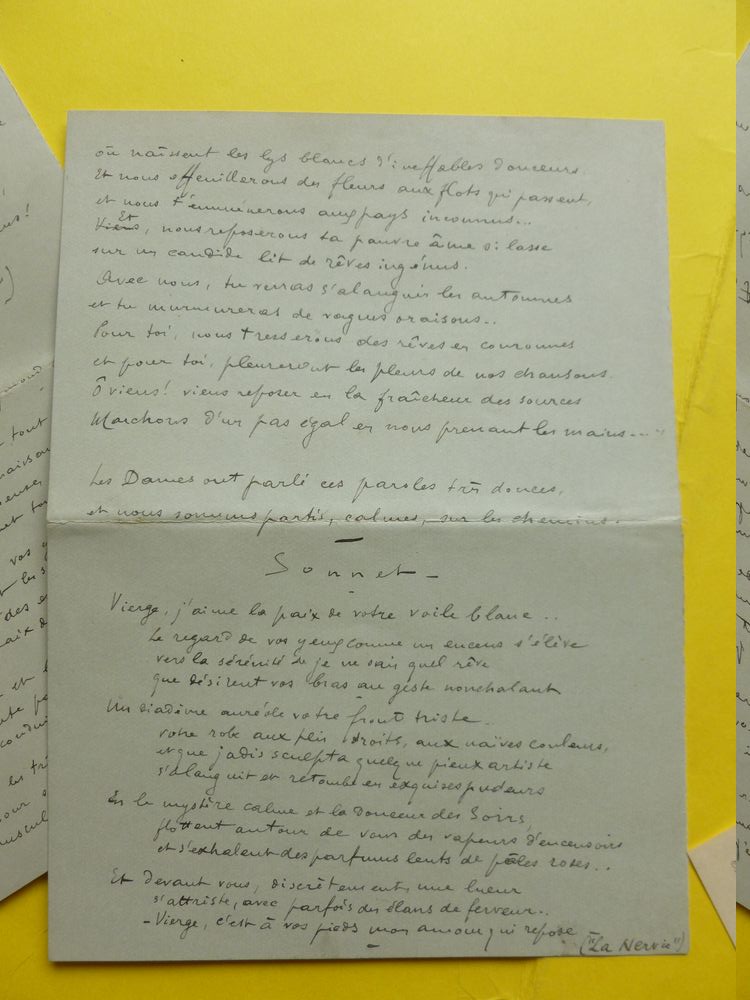 où naissent les lys blancs d'ineffables douceurs.
Et nous effeuillerons des fleurs aux flots qui passent,
et nous t'emmènerons aux pays inconnus...
Et, nous reposerons ta pauvre âme si lasse
sur un candide lit de rêves ingénus.
Avec nous, tu verras s'alanguir les automnes
et tu murmureras de vagues oraisons..
Pour toi, nous tresserons des rêves en couronnes
et pour toi, pleureront les pleurs de nos chansons.
Ô viens! viens reposer en la fraîcheur des sources
Marchons d'un pas égal en nous prenant les mains..."
Les Dames ont parlé ces paroles très douces,
et nous sommes partis, calmes, sur les chemins.
Sonnet -
Vierge, j'aime la paix de votre voile blanc..
Le regard de vos yeux comme un encens s'élève
vers la sérénité de je ne sais quel rêve
que désirent vos bras au geste nonchalant
Un diadème auréole votre front triste.
votre robe aux plis droits, aux naïves couleurs,
et que jadis sculpta quelque pieux artiste
s'alanguit et retombe en exquises pudeurs
En le mystère calme et la douceur des Soirs,
flottent autour de vous des vapeurs d'encensoirs
et s'exhalent des parfums lents de pâles roses..
Et devant vous, discrètement, une lueur
s'attriste, avec parfois des élans de ferveur..
- Vierge, c'est à vos pieds mon amour qui repose -
("La Nervie")